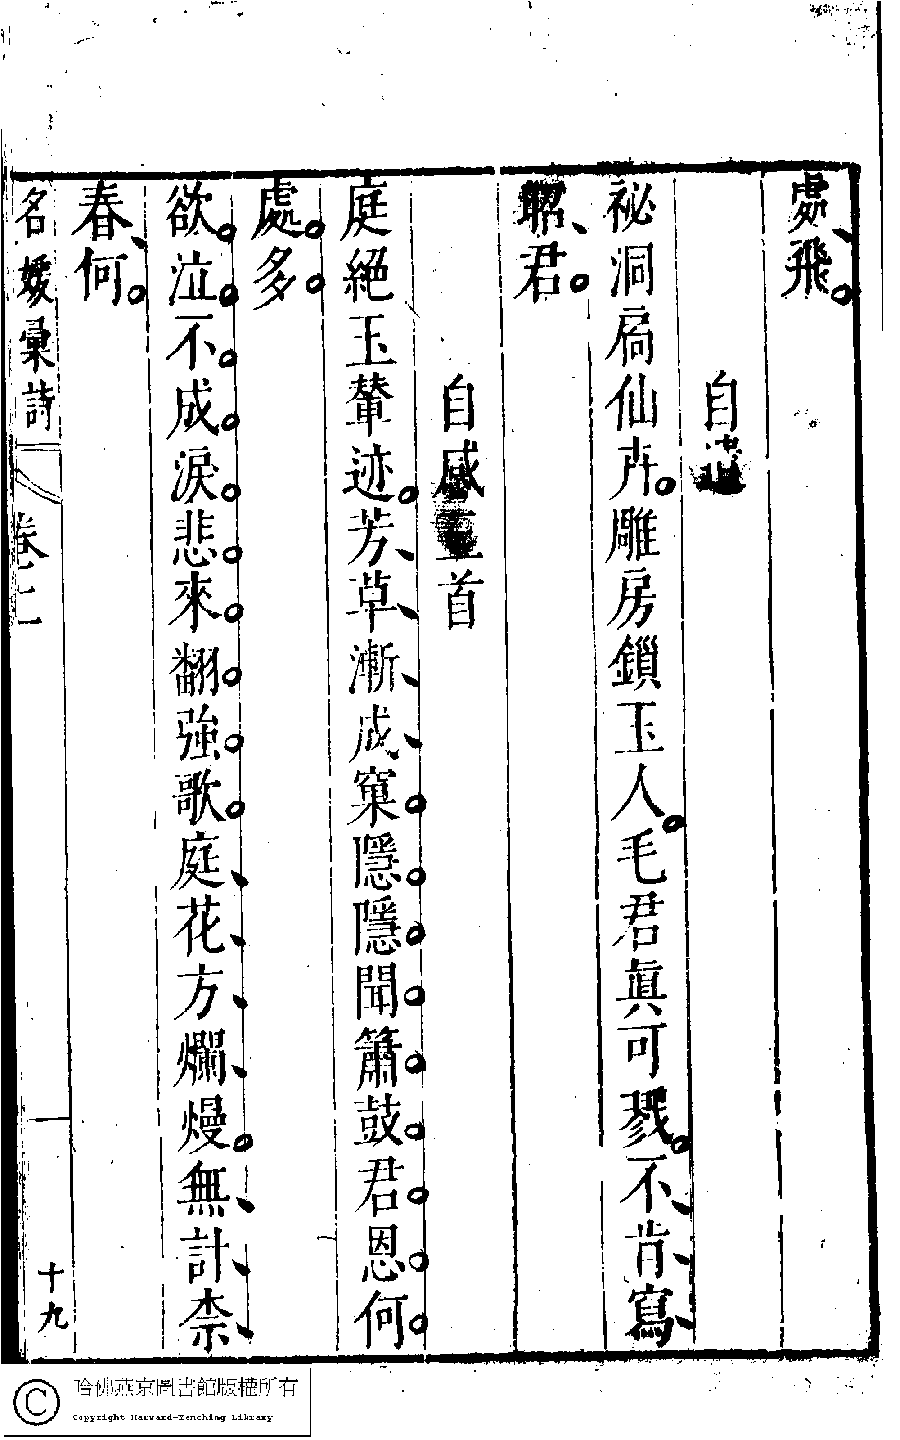 處飛
自遣
祕洞扃仙卉雕房鎖玉人毛君真可戮不肯寫
昭君
自感三首
庭絕玉輦迹芳草漸成窠隱隱聞簫鼓君恩何
處多
欲泣不成淚悲來翻強歌庭花方爛熳無計柰
春何
名媛彙詩
卷十一
十九
哈佛燕京圖書館版權所有
Copyright Harvard-Yenching Library